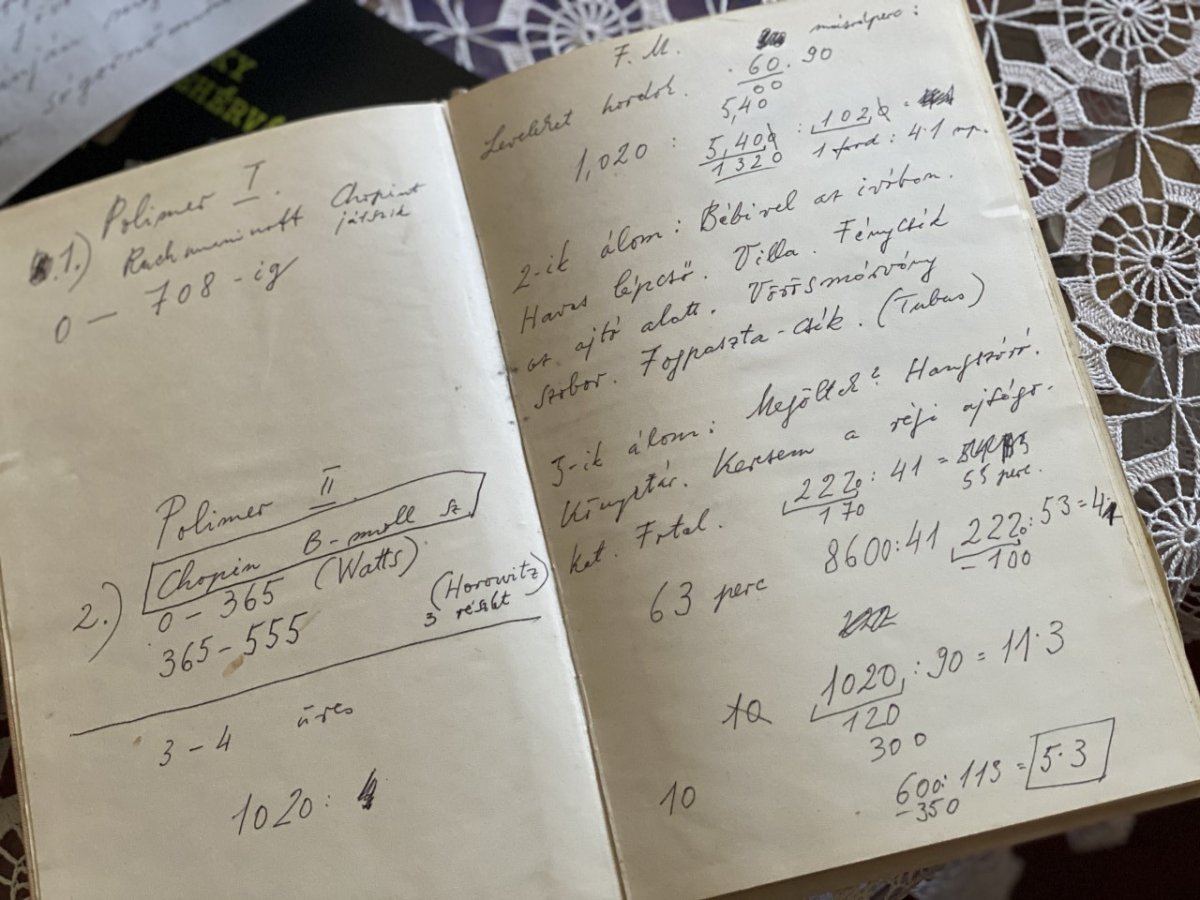 KY
HÉRVÁ
Polimer I.
1.) Rachmaninoff Chopint
játszik
0 — 708 -ig
Polimer II.
2.) Chopin B-moll sz.
0-365 (Watts)
365-555 (Horowitz)
3 részlet
3-4 üres
1020:
F. M. másodperc:
Leveleket hordok. 60.90
00
5,40
1,020 : 5,400 : 102,0 =
1320 1 ford : 4.1 mp.
2-ik álom: Bébivel az ivóban.
Havas lépcső. Villa. Fénycsík
az ajtó alatt. Vörösmárvány
szobor. Fogpaszta-csík. (Tubus)
3-ik álom: Megöltek? Hangszóró.
Könyvtár. Keresem a régi ajtógo.
kat. 222 : 41 =
170 55 perc.
63 perc 8600:41 222 : 53 = 4.
-100
10 1020 : 90 = 11.3
120
300
10 600: 113 = 5.3
-350